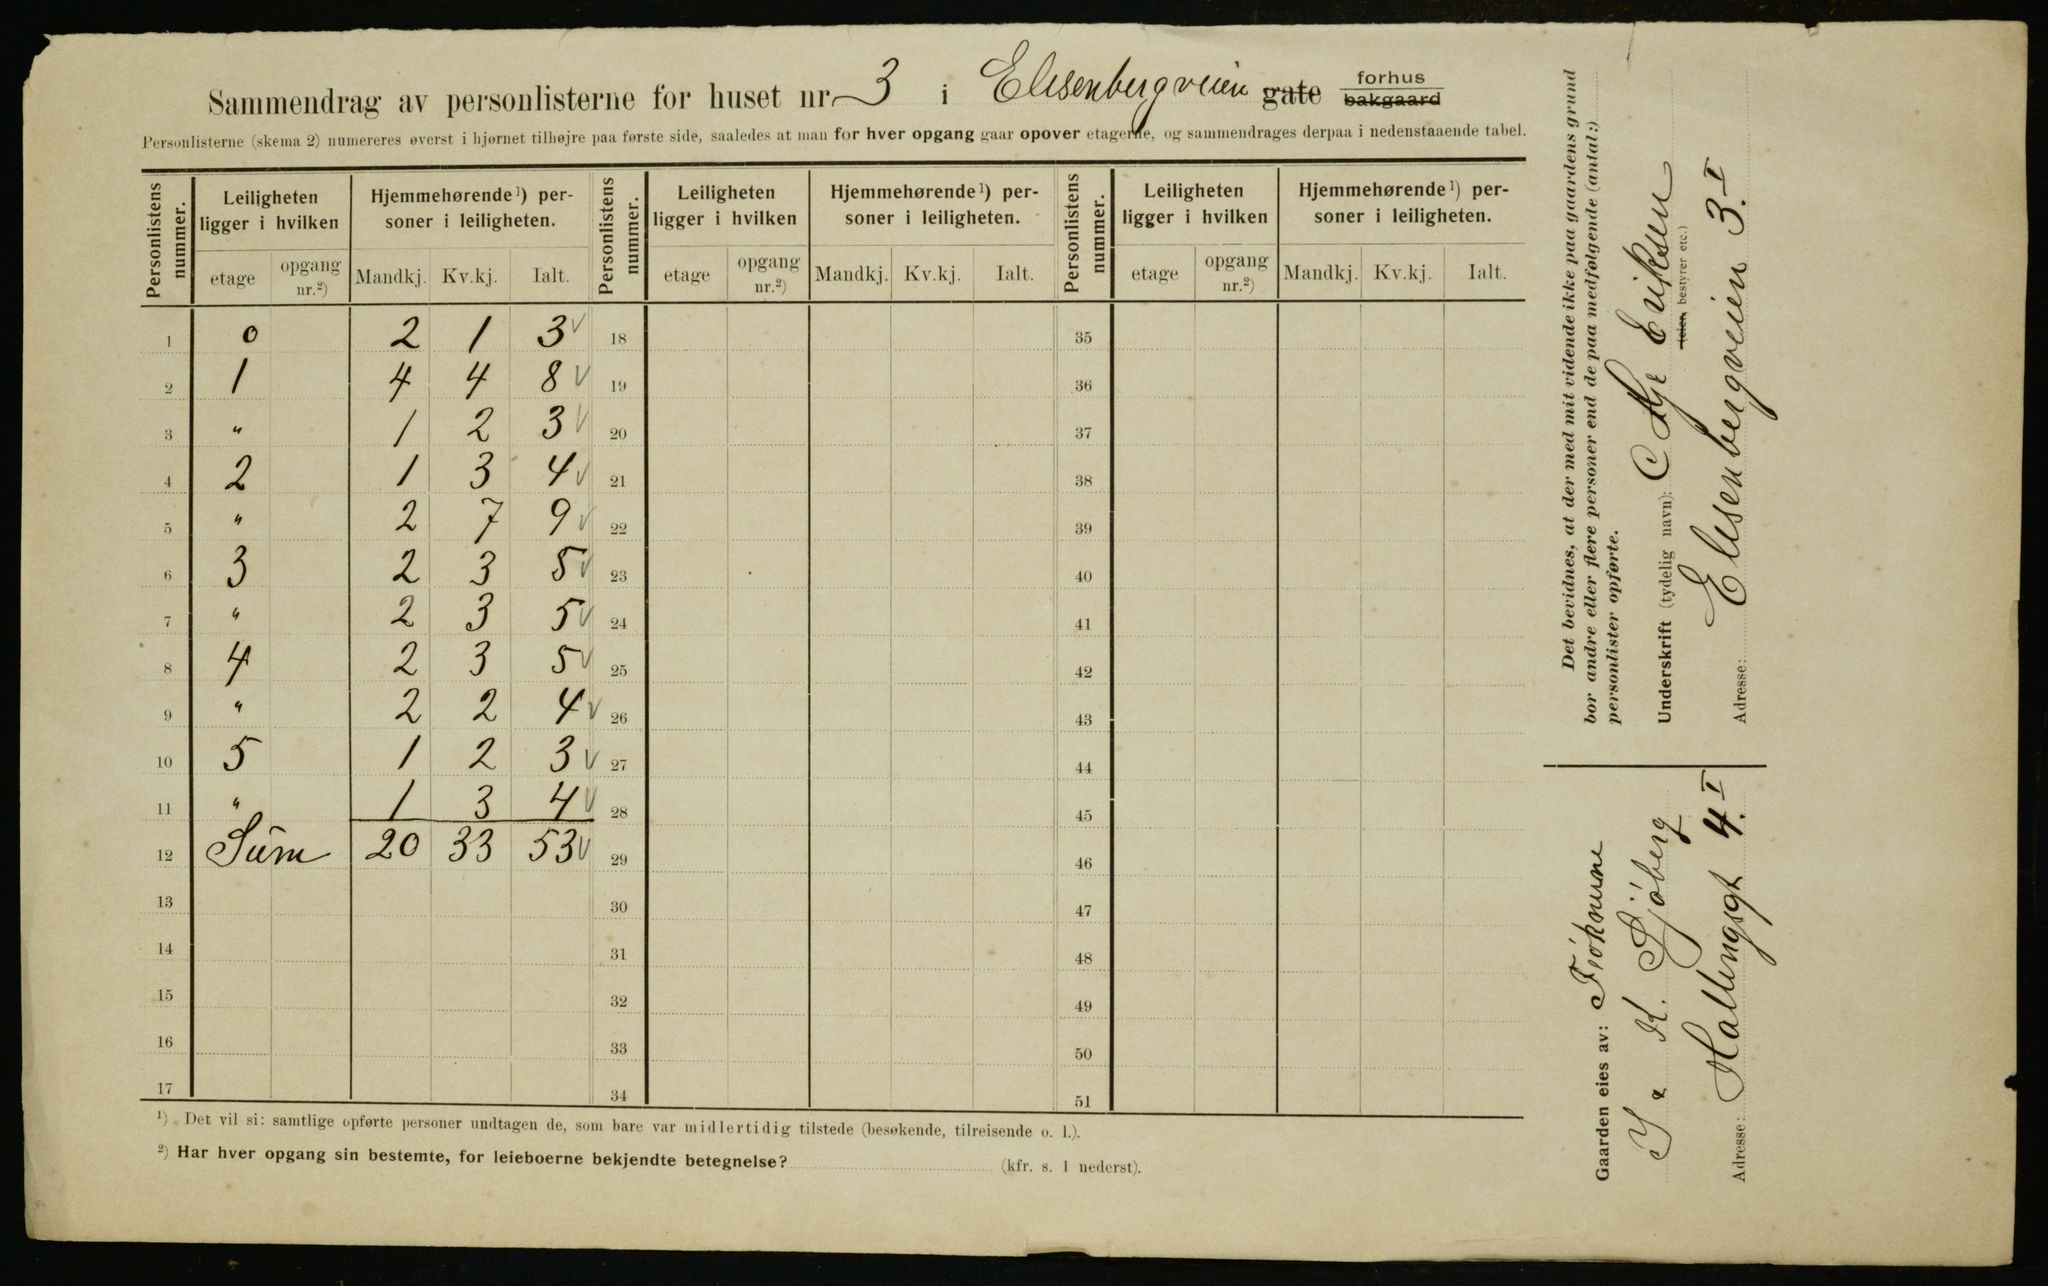 Sammendrag av personlisterne for huset nr. 3 i Elisenbergveien gate forhus bakgaard
Personlisterne (skema 2) numereres øverst i hjørnet tilhøjre paa første side, saaledes at man for hver opgang gaar opover etagerne, og sammendrages derpaa i nedenstaaende tabel.
Personlistens nummer. Leiligheten ligger i hvilken Hjemmehørende ¹) personer i leiligheten. Personlistens nummer. Leiligheten ligger i hvilken Hjemmehørende ¹) personer i leiligheten. Personlistens nummer. Leiligheten ligger i hvilken Hjemmehørende ¹) personer i leiligheten.
etage opgang nr.²) Mandkj. Kv.kj. Ialt. etage opgang nr.²) Mandkj. Kv.kj. Ialt. etage opgang nr.²) Mandkj. Kv.kj. Ialt.
1 0 2 1 3 √ 18 35
2 1 4 4 8 √ 19 36
3 " 1 2 3 √ 20 37
4 2 1 3 4 √ 21 38
5 " 2 7 9 √ 22 39
6 3 2 3 5 √ 23 40
7 " 2 3 5 √ 24 41
8 4 2 3 5 √ 25 42
9 " 2 2 4 √ 26 43
10 5 1 2 3 √ 27 44
11 " 1 3 4 √ 28 45
12 Sum 20 33 53 √ 29 46
13 30 47
14 31 48
15 32 49
16 33 50
17 34 51
¹) Det vil si: samtlige opførte personer undtagen de, som bare var midlertidig tilstede (besøkende, tilreisende o. l.).
²) Har hver opgang sin bestemte, for leieboerne bekjendte betegnelse? (kfr. s. 1 nederst).
Det bevidnes, at der med mit vidende ikke paa gaardens grund
bor andre eller flere personer end de paa medfølgende (antal:)
personlister opførte.
Underskrift (tydelig navn): Eriksen
(eier, bestyrer etc.)
Adresse: Elisenbergveien 3. I
Gaarden eies av: Frøknune
K. Sjöberg
Adresse: Hallingsgt 4. I